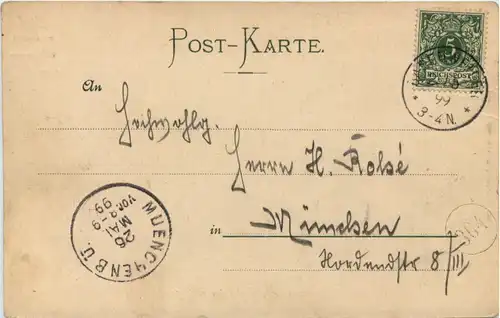 POST-KARTE.
5
REICHSPOST
99
* 3-4 N. *
An
Hochwohlg.
Herrn H. Rolsé
in München
Nordendstr 8/III
MUENCHEN B.U.
26
MAI
VOR. 8-9
99